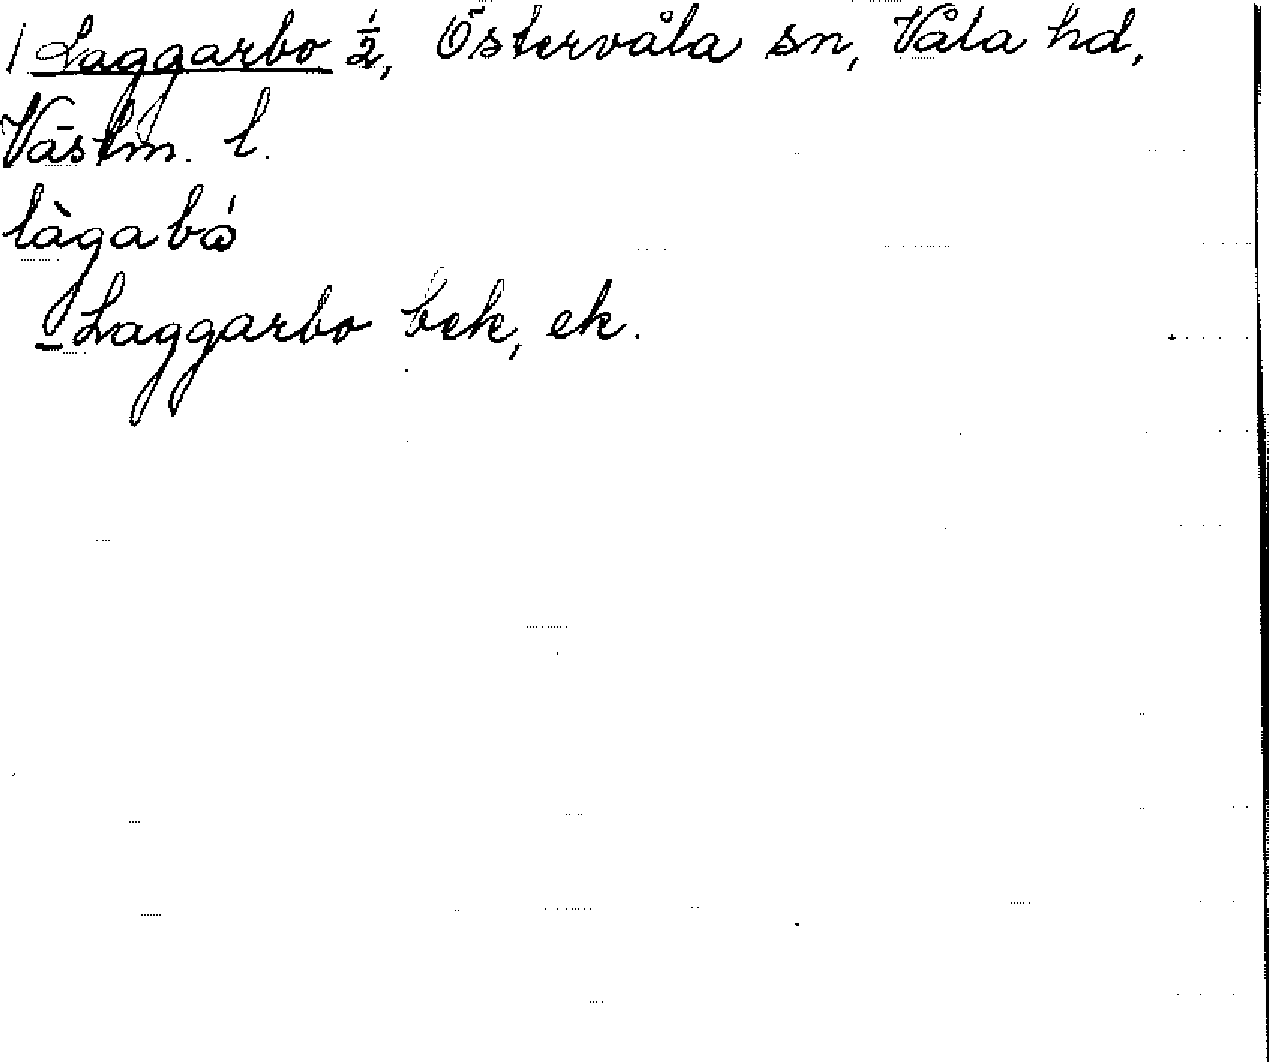 | Laggarbo ½, Östervåla sn, Våla hd,
Västm. l.
làgabó
Laggarbo bek, ek.